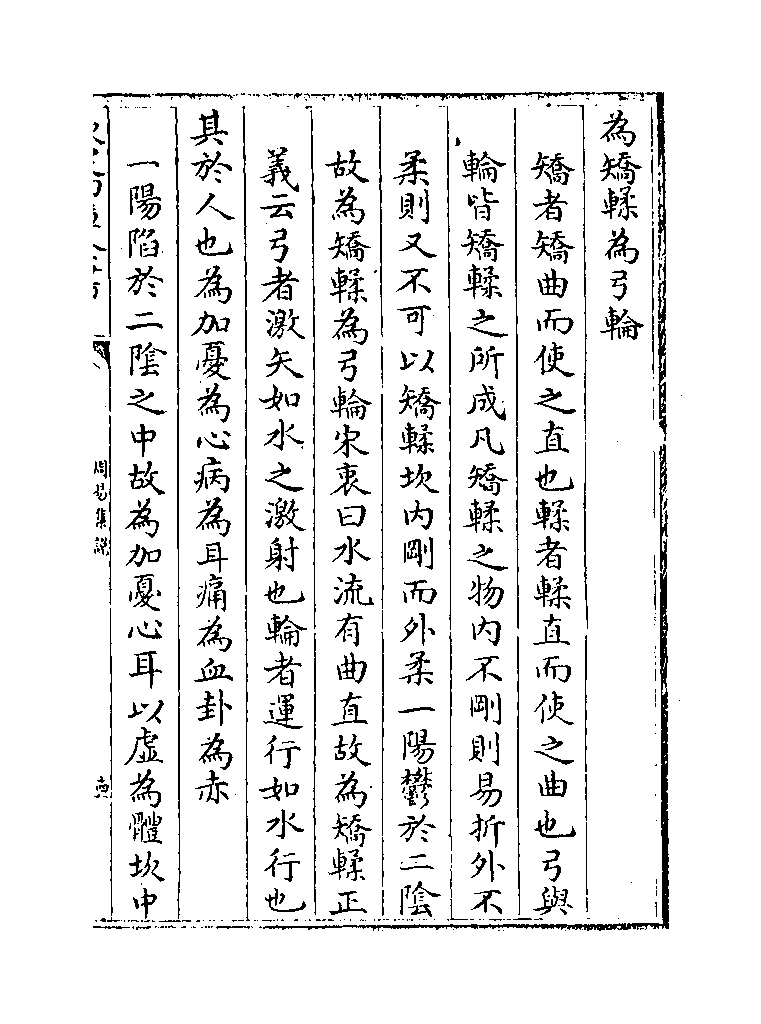 為矯輮為弓輪
矯者矯曲而使之直也輮者輮直而使之曲也弓與
輪皆矯輮之所成凡矯輮之物内不剛則易折外不
柔則又不可以矯輮坎内剛而外柔一陽鬱於二隂
故為矯輮為弓輪宋衷曰水流有曲直故為矯輮正
義云弓者激矢如水之激射也輪者運行如水行也
其於人也為加憂為心病為耳痛為血卦為赤
一陽陷於二隂之中故為加憂心耳以虚為體坎中
周易集説